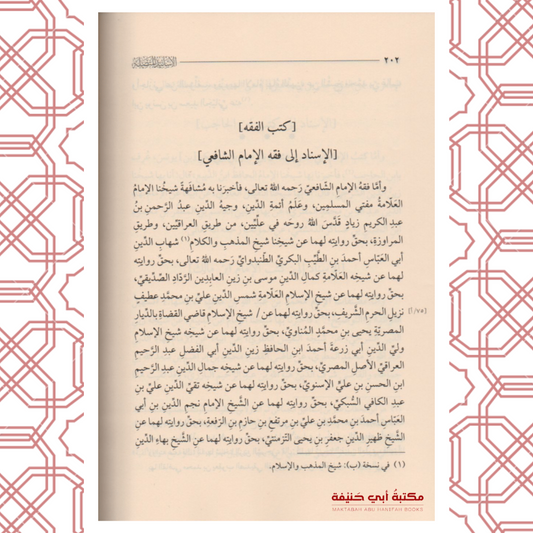 ٢٠٢
[كتب الفقه]
[الإسناد إلى فقه الإمام الشافعي]
وأمَّا فقهُ الإمام الشَّافعيِّ رَحمه اللهُ تعالى، فأخبرَنا به مُشافَهةً شيخُنا الإمامُ
العَلَّامةُ مفتي المسلمين، وعَلَمُ أئمةِ الدِّين، وجيهُ الدِّين عبدُ الرَّحمنِ بنُ
عبدِ الكريم زيادٍ قَدَّسَ اللهُ روحَه في علِّيِّين، من طريقِ العراقيِّين، وطريقِ
المراوِزة، بحقِّ روايته لهما عن شيخِنا شيخِ المذهب والكلامِ(١) شهابِ الدِّين
أبي العَبَّاس أحمدَ بنِ الطَّيِّب البكريِّ الطَّنبداويِّ رَحمه اللهُ تعالى، بحقِّ روايته
لهما عن شيخِه العَلَّامةِ كمالِ الدِّين موسى بنِ زينِ العابِدين الرَّدَّادِ الصِّدِّيقيِّ،
بحقِّ روايته لهما عن شيخِ الإسلام العَلَّامةِ شمسِ الدِّين عليِّ بنِ محمَّدِ عطيفٍ
نزيلِ الحرمِ الشَّريف، بحقِّ روايته لهما عن / شيخِ الإسلام قاضي القضاةِ بالدِّيارِ
[٧٥/أ]
المصريَّةِ يحيى بنِ محمَّدٍ المُناويِّ، بحقِّ روايته لهما عن شيخِه شيخِ الإسلام
وليِّ الدِّين أبي زرعةَ أحمدَ ابنِ الحافظِ زينِ الدِّين أبي الفضل عبدِ الرَّحيم
العراقيِّ الأصلِ المصريِّ، بحقِّ روايته لهما عن شيخِه جمالِ الدِّين عبدِ الرَّحيم
ابنِ الحسن بنِ عليٍّ الإسنويِّ، بحقِّ روايته لهما عن شيخِه تقيِّ الدِّين عليِّ بنِ
عبدِ الكافي السُّبكيِّ، بحقِّ روايته لهما عنِ الشَّيخِ الإمامِ نجمِ الدِّين بنِ أبي
العَبَّاس أحمدَ بنِ محمَّدِ بنِ عليِّ بنِ مرتفعِ بنِ حازمِ بنِ الرِّفعةِ، بحقِّ روايته لهما عن
الشَّيخِ ظهيرِ الدِّين جعفرِ بنِ يحيى التِّزمنتيِّ، بحقِّ روايته لهما عن الشَّيخِ بهاءِ الدِّينِ
(١) في نسخة (ب): شيخ المذهب والإسلام.
مكتبة أبي حنيفة
MAKTABAH ABU HANIFAH BOOKS